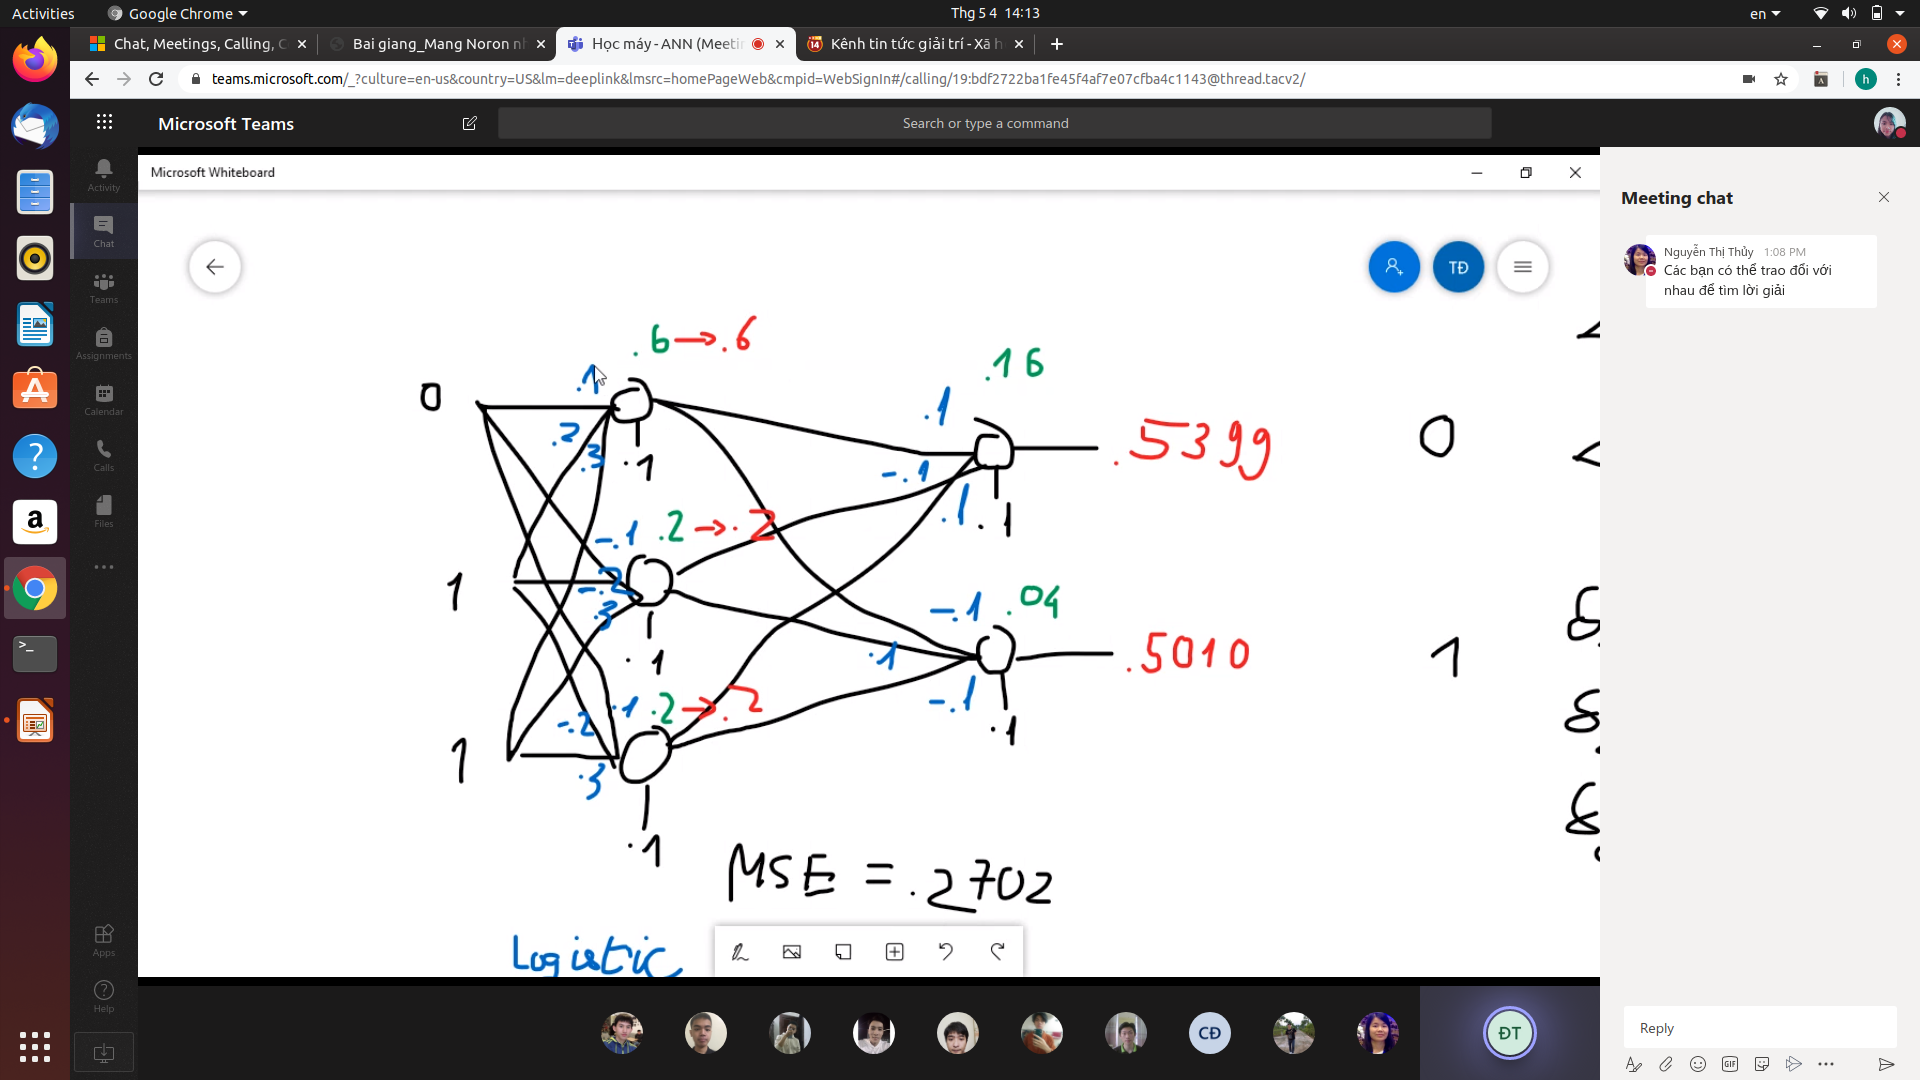 Activities
Google Chrome
Thg 5 4 14:13
en
Chat, Meetings, Calling, C
Bai giang_Mang Noron nh
Học máy - ANN (Meeti
Kênh tin tức giải trí - Xã h
teams.microsoft.com/_?culture=en-us&country=US&lm=deeplink&lmsrc=homePageWeb&cmpid=WebSignIn#/calling/19:bdf2722ba1fe45f4af7e07cfba4c1143@thread.tacv2/
h
Microsoft Teams
Search or type a command
Activity
Chat
Teams
Assignments
Calendar
Calls
Files
Apps
Help
Microsoft Whiteboard
TĐ
.6 → .6
.16
0
.1
.1
.5399
0
.2
.3
.1
-.1
.1
.1
-.1
.2 → .2
1
-.2
.3
-.1
.04
.1
.1
.5010
1
.1
.2 → .2
-.2
-.1
.1
1
.3
.1
MSE = .2702
Logistic
CĐ
ĐT
Meeting chat
Nguyễn Thị Thủy 1:08 PM
Các bạn có thể trao đổi với
nhau để tìm lời giải
Reply
GIF